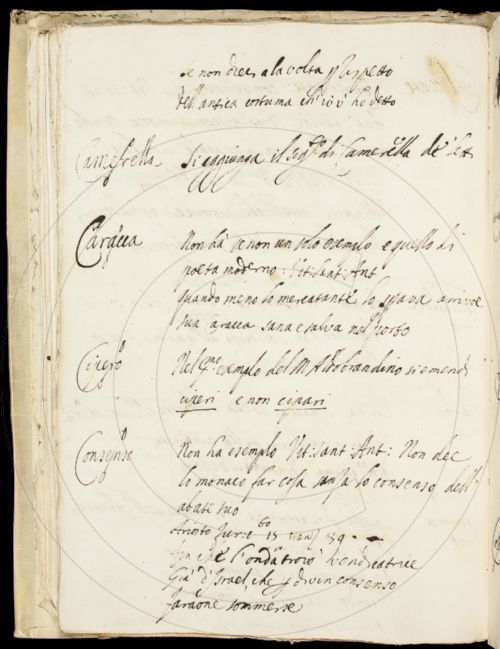 se non dieci a la volta p rispetto
dell'antica costuma ch'io v'ho detto
Si aggiunga il sig.to di
Caracca
Non ha se non un solo esempio e quello di
poeta moderno: Vit: Sant: Ant
quando meno lo mercatante lo sperava arrivoe
sua Caracca sana e salva nel porto
Cipero
Nel pmo esemplo del M. Aldobrandino si emendi
ciperi e non cipari
Consenso
Non ha esempio Vit: Sant: Ant: Non dee
lo monaco far cosa sanza lo consenso dell'
abate suo
Ariosto Fur: C 15 39
vendicatrice
Già d'Israel, che p divin consenso
faraone sommerse